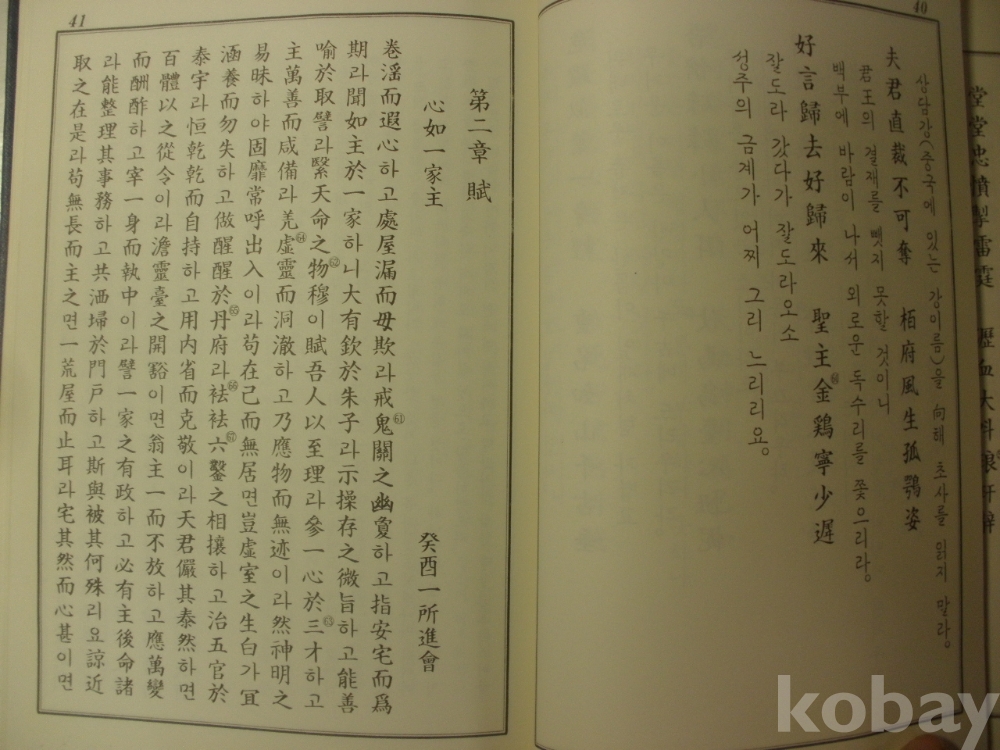 40
堂堂忠憤掣雷霆 血大
상담강(중국에 있는 강이름)을 向해 초사를 읽지 말라.
夫君直裁不可奪 栢府風生孤鶚姿
君王의 결재를 뺏지 못할 것이니
백부에 바람이 나서 외로운 독수리를 쫓으리라.
好言歸去好歸來 聖主金鷄寧少遲
잘도라 갔다가 잘도라오소
성주의 금계가 어찌 그리 느리리요.
41
第二章 賦
心如一家主 癸酉一所進會
卷滛而遐心하고 處屋漏而毋欺라 戒鬼關之幽敻하고 指安宅而爲
期라 聞如主於一家하니 大有欽於朱子라 示操存之微旨하고 能善
喻於取譬라 緊天命之物穆이 賦吾人以至理라 參一心於三才하고
主萬善而咸備라 羌虛靈而洞澈하고 乃應物而無迹이라 然神明之
易昧하야 固靡常呼出入이라 苟在己而無居면 豈虛室之生白가 冝
涵養而勿失하고 做醒醒於丹府라 袪袪六鑿之相攘하고 治五官於
泰宇라 恒乾乾而自持하고 用內省而克敬이라 天君儼其泰然하면
百體以之從令이라 澹靈臺之開豁이면 翁主一而不放하고 應萬變
而酬酢하고 宰一身而執中이라 譬一家之有政하고 必有主後命諸
라 能整理其事務하고 共洒埽於門戶하고 斯與被其何殊리요 諒近
取之在是라 苟無長而主之면 一荒屋而止耳라 宅其然而心甚이면
kobay